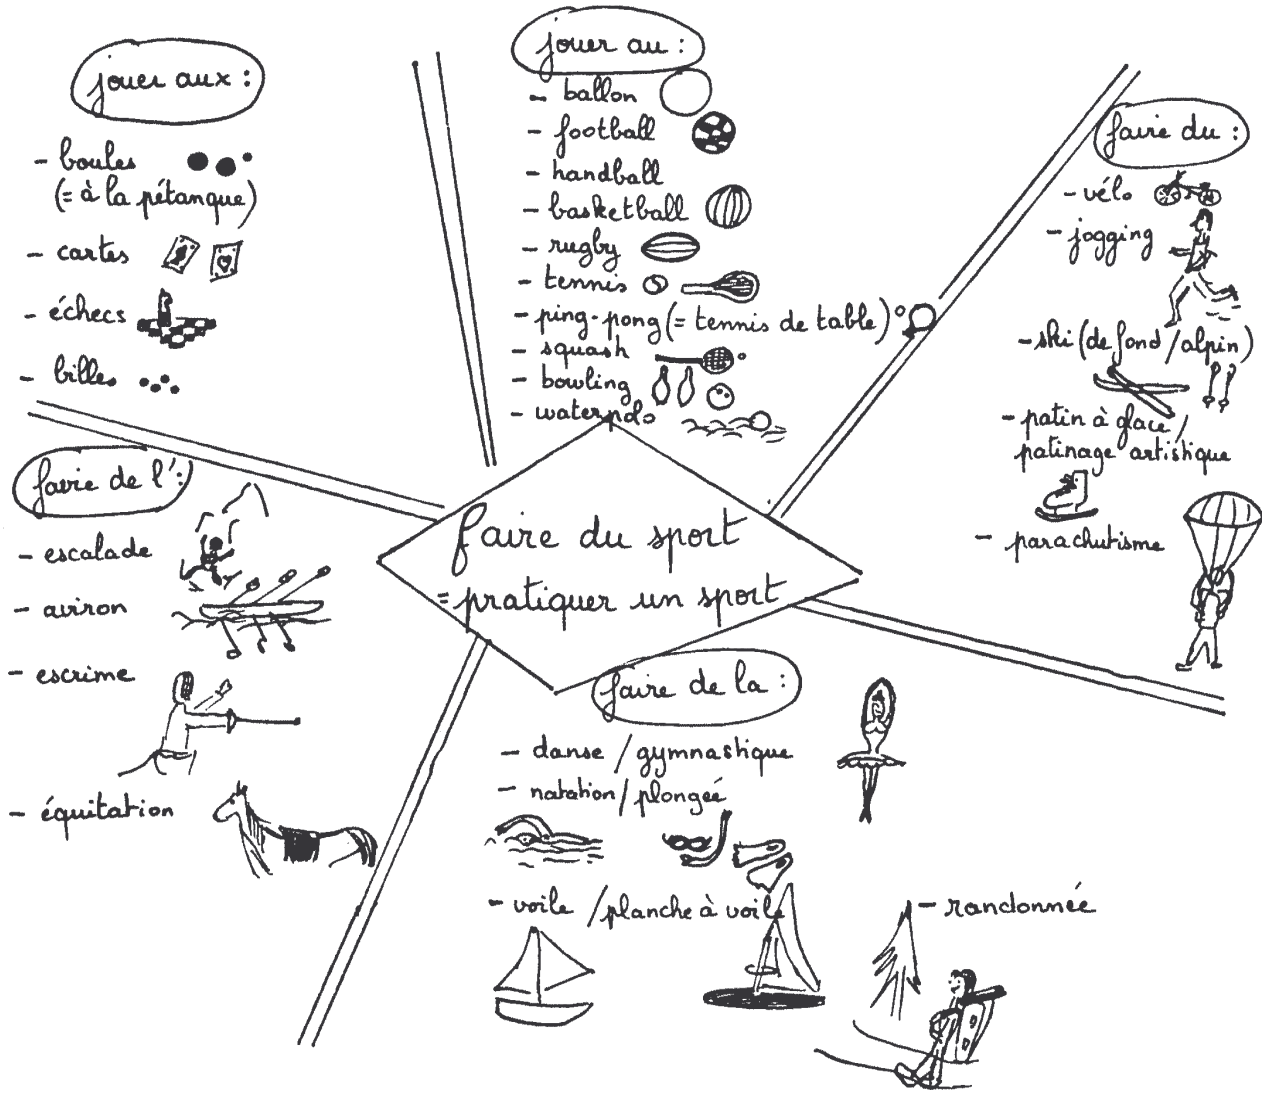 jouer aux :
- boules
(= à la pétanque)
- cartes
- échecs
- billes
jouer au :
- ballon
- football
- handball
- basketball
- rugby
- tennis
- ping-pong (= tennis de table)
- squash
- bowling
- waterpolo
faire du :
- vélo
- jogging
- ski (de fond / alpin)
- patin à glace /
patinage artistique
- parachutisme
faire de l' :
- escalade
- aviron
- escrime
- équitation
faire du sport
= pratiquer un sport
faire de la :
- danse / gymnastique
- natation / plongée
- voile / planche à voile
- randonnée